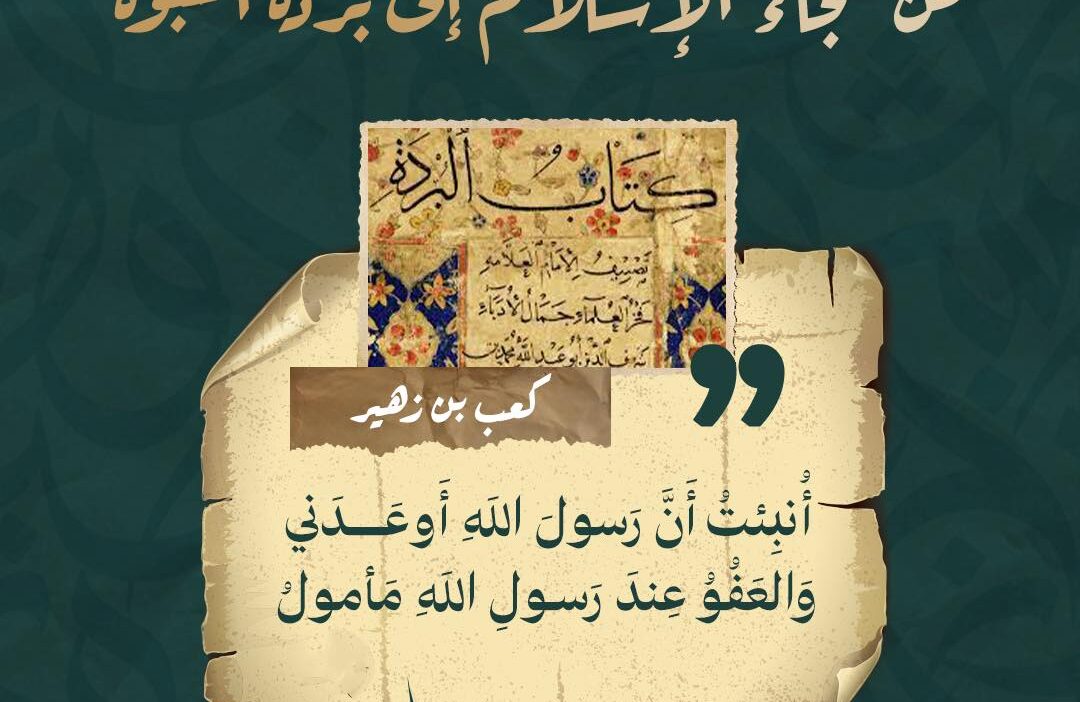 من هجاء الإسلام إلى بردة النبوة
كِتَابُ البُرْدَةِ
تصنيف الإمام العلامة
فخر العلماء جمال الأدباء
شرف الدين أبو عبد الله محمد بن
كعب بن زهير
أُنبِئتُ أَنَّ رَسولَ اللَهِ أَوعَـــدَني
وَالعَفُوُ عِندَ رَسـولِ اللَهِ مَأمولُ